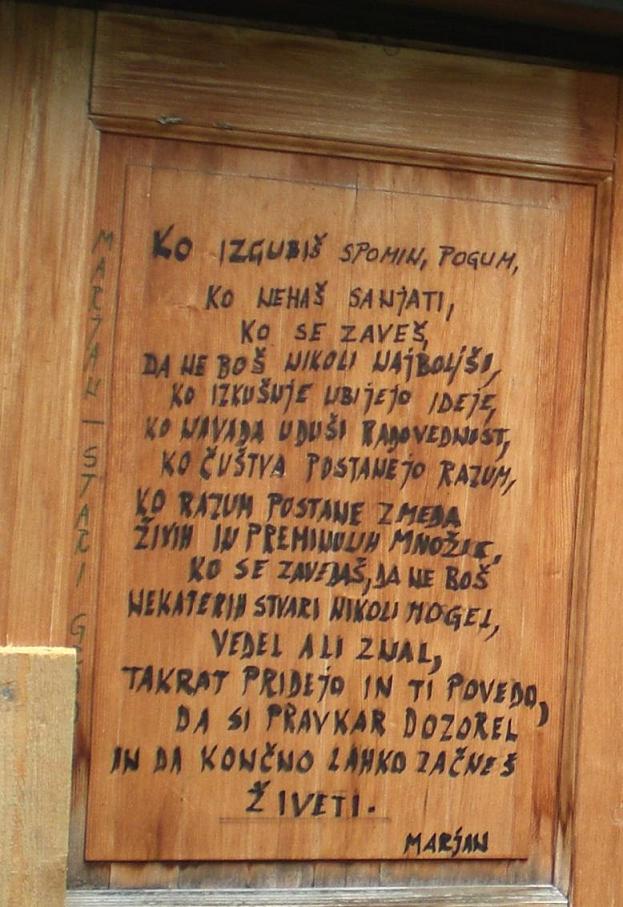 KO IZGUBIŠ SPOMIN, POGUM,
KO NEHAŠ SANJATI,
KO SE ZAVEŠ,
DA NE BOŠ NIKOLI NAJBOLJŠI,
KO IZKUŠNJE UBIJEJO IDEJE,
KO NAVADA UDUŠI RADOVEDNOST,
KO ČUŠTVA POSTANEJO RAZUM,
KO RAZUM POSTANE ZMEDA
ŽIVIH IN PREMINULIH MNOŽIC,
KO SE ZAVEDAŠ, DA NE BOŠ
NEKATERIH STVARI NIKOLI MOGEL,
VEDEL ALI ZNAL,
TAKRAT PRIDEJO IN TI POVEDO,
DA SI PRAVKAR DOZOREL
IN DA KONČNO LAHKO ZAČNEŠ
ŽIVETI.
MARJAN
MARJAN - STARI